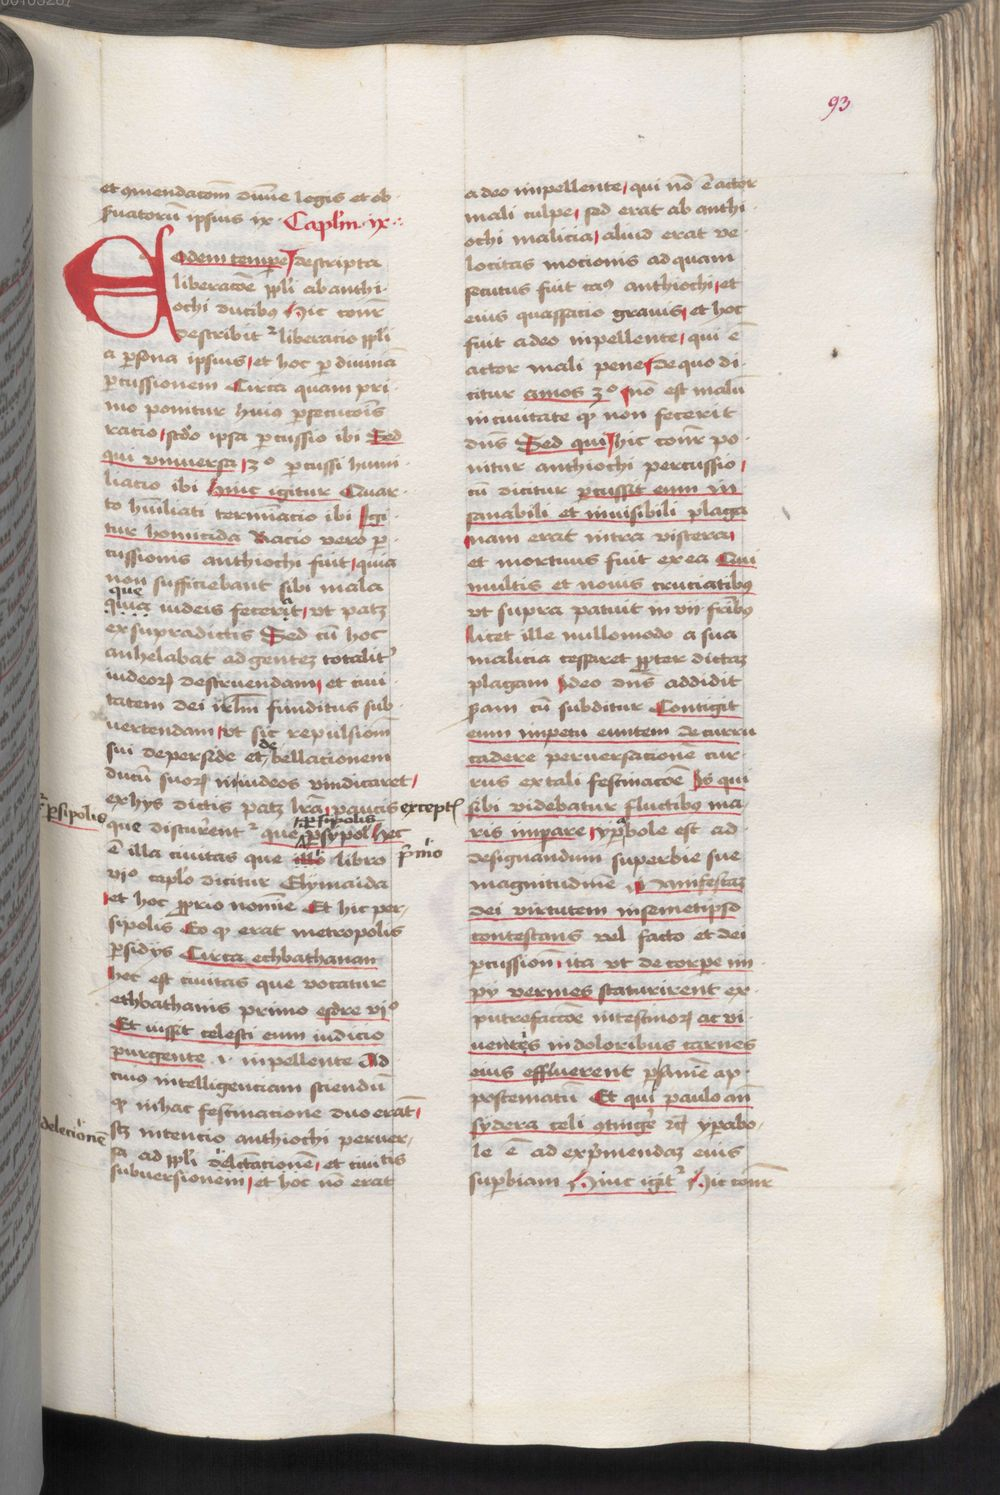 93
et ɔmendacom̄ diuīe legis et ob
seruatorū ipsius ix Caplm̄ ix
Eodem tempe descripta
liberacōe ppl̄i ab anthi
ochi ducibꝰ Hic conr̄
describitʳ liberacio ppl̄i
a psona ipsius et hoc p diuinā
pcussionem Circa quam pri
mo ponitur huiꝰ psecucōis
racio scd̄o ipsa pcussio ibi Sed
qui vniuersa 3º pcussi humi
liacio ibi Hinc igitur Quar
to hūiliati termīacio ibi Igi
tur homicida Racio vero p
cussionis anthiochi fuit quia
non sufficiebant sibi mala
que
quia iudeis fecerat vt patꝫ
ex supradictis Sed cū hoc
anhelabat ad genteꝫ totalitʳ
iudeoꝝ destruendam et ciui
tatem dei irl̄m funditus sub
uertendam vt sic repulsiom̄
sui de perside et de bellacionem
ducū suoꝝ in iudeos vindicaret
ex hys dictis patꝫ lr̄a paucis exceptꝭ
psipolis
que discurrentʳ que psypol Hec
psipolis
ē illa ciuitas que illo libro pͥmo
vjº caplo dicitur Elymaida
et hoc pprio nomīe Et hic per
sipolis Eo ꝙ erat metropolis
psidys Circa echbathanan
hec est ciuitas que vocatur
ethbathanis primo esdre vjº
Et iussit celesti eum iudicio
purgente .i. inpellente Ad
cuiꝰ intelligenciam sciendū
ꝙ in hac festinacione duo erāt
scꝫ intencio anthiochi peruer
delecionē
sa ad ppl̄i delectacionē et ciuitatis
subuersionem et hoc nō erat
a deo impellente qui nō ē actor
mali culpe sed erat ab anthi
ochi malicia aliud erat ve
locitas mocionis ad quam
secutus fuit casꝰ anthiochi et
eius quassacio grauis et hoc
fuit a deo inpellente qui ē
actor mali pene de quo di
citur amos 3º nō est malū
in ciuitate ꝙ non fecerit
dn̄s Sed qui hic conr̄ po
nitur anthiochi percussio
cū dicitur pcussit eum in
sanabili et inuisibili plaga
nam erat intra viscera
et mortuus fuit ex ea Qui
multis et nouis cruciatibꝰ
vt supra patuit in vii frībꝰ
licet ille nullomodo a sua
malicia cessaret ppter dictaꝫ
plagam Ideo dn̄s addidit
pam cū subditur Contigit
eum impetu euntem de curru
cadere peruersacionē cur
rus ex tali festinacōe Is qui
sibi videbatur fluctibꝰ ma
ris impare ypabole est ad
designandum superbie sue
magnitudinē Manifestaꝫ
dei virtutem in semetipso
contestans vel facto et dei
pcussion̄ ita vt de corpe im
py vermes scaturirent ex
putrefaccōe intestinoꝝ ac vi
uentes in doloribus carnes
eius effluerent p saniē ap
postematū Et qui paulo an̄
sydera celi ɔtingē rc̄ ypabo
le ē ad expͥmendaꝫ eius
supbiam Hinc igitʳ Hic conr̄